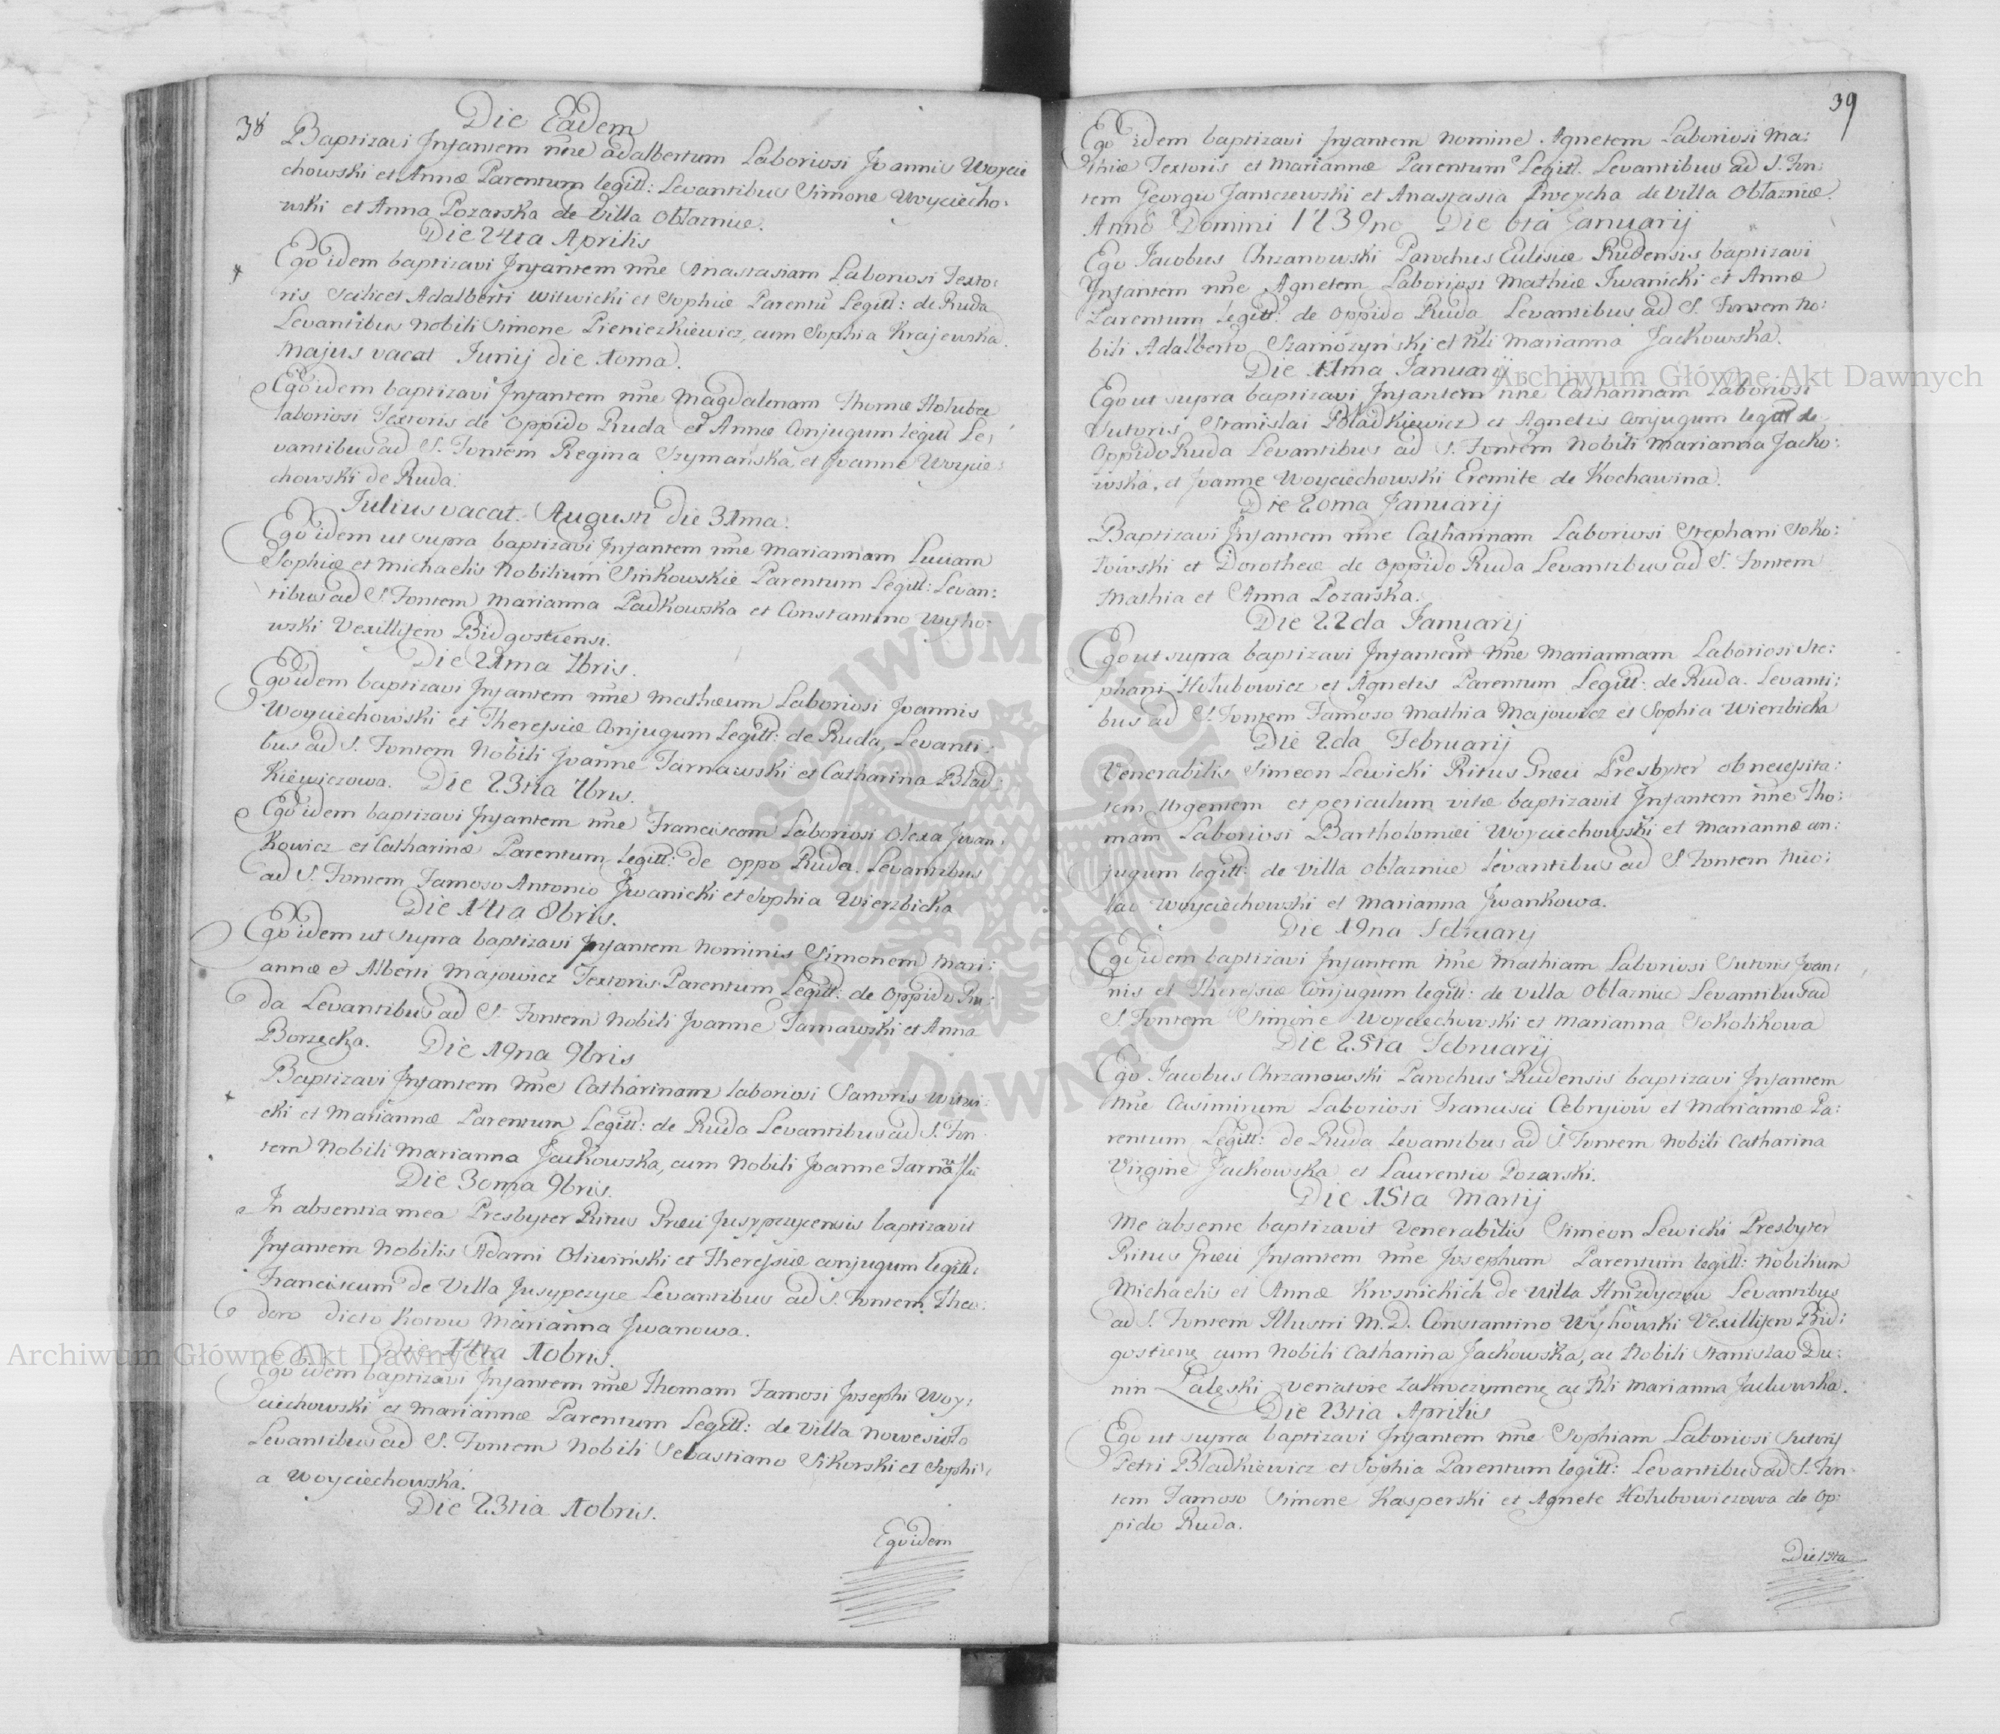 38
Die Eadem
Baptizavi Jnfantem nñe adalbertum Laboriosi Joannis Woycie
chowski et Annæ Parentum legitt: Levantibus Simone Woyciecho:
wski et Anna Pozarska de Villa Obłaznice.
Die 24ta Aprilis
Ego idem baptizavi Jnfantem nñe Anastasiam Laboriosi Texto:
ris scilicet Adalberti Witwicki et Sophiæ Parentũ Legitt: de Ruda
Levantibus Nobili Simone Pieniezkiewicz, cum Sophia Krajewska.
Majus vacat Junij die 10ma.
Ego idem baptizavi Jnfantem nñe Magdalenam Thomæ Holuber
laboriosi Textoris de Oppido Ruda et Annæ Conjugum legitt Le:
vantibus ad S. Fontem Regina Szymańska, et Joanne Woycie:
chowski de Ruda.
Julius vacat. Augusti die 31ma.
Ego idem ut supra baptizavi Jnfantem nñe Mariannam Luciam
Sophiæ et Michaelis Nobilium Sinkowskie Parentum Legitt: Levan:
tibus ad S. Fontem Marianna Padkowska et Constantino Wyho:
wski Vexillifero Bidgostiensi.
Die 21ma 7bris.
Ego idem baptizavi Jnfantem nñe Mathæum Laboriosi Joannis
Woyciechowski et Theressiæ Conjugum Legitt: de Ruda, Levanti:
bus ad S. Fontem Nobili Joanne Tarnawski et Catharina Blad:
kiewiczowa. Die 23tia 7bris.
Ego idem baptizavi Jnfantem nñe Franciscam Laboriosi Olexa Jwan:
kowicz et Catharinæ Parentum legitt: de Oppo Ruda. Levantibus
ad S. Fontem Famoso Antonio Jwanicki et Sophia Wierzbicka
Die 14ta 8bris.
Ego idem ut supra baptizavi Jnfantem Nominis Simonem Mari:
annæ et Alberti Majowicz Textoris Parentum Legitt: de Oppido Ru:
da Levantibus ad S. Fontem Nobili Joanne Tarnawski et Anna
Borzęcka. Die 19na 9bris
Baptizavi Jnfantem nñe Catharinam laboriosi Sartoris Witwi:
cki et Mariannæ Parentum Legitt: de Ruda Levantibus ad S. Fon
tem Nobili Marianna Jackowska, cum Nobili Joanne Tarnawski
Die 30ma 9bris.
Jn absentia mea Presbyter Ritus Græci Jusypzycensis baptizavit
Jnfantem Nobilis Adami Oliwiński et Theressiæ conjugum legitt:
Franciscum de Villa Jusypczyce Levantibus ad S. Fontem Theo:
doro dicto Kotow Marianna Jwanowa.
Die 14ta 10bris.
Ego idem baptizavi Jnfantem nñe Thomam Famosi Josephi Woy:
ciechowski et Mariannæ Parentum Legitt: de Villa Nowesioło
Levantibus ad S. Fontem Nobili Sebastiano Sikorski et Sophi:
a Woyciechowska.
Die 23tia 10bris.
Ego idem
39
Ego idem baptizavi Jnfantem Nomine Agnetem Laboriosi Ma:
thiæ Textoris et Mariannæ Parentum Legitt. Levantibus ad S. Fon:
tem Georgio Janiczewski et Anastasia Jweycha de Villa Obłaznice.
Anno Domini 1739no Die 6ta Januarij
Ego Jacobus Chrzanowski Parochus Eclisiæ Rudensis baptizavi
Jnfantem nñe Agnetem Laboriosi Mathiæ Jwanicki et Annæ
Parentum legitt: de Oppido Ruda Levantibus ad S. Fontem No:
bili Adalberto Szarnozynski et Nli Marianna Jackowska.
Die 11ma Januarij
Ego ut supra baptizavi Jnfantem nñe Catharinam Laboriosi
Sutoris Stanislai Bladkiewicz et Agnetis Conjugum legitt de
Oppido Ruda Levantibus ad S. Fontem Nobili Marianna Jacko:
wska, et Joanne Woyciechowski Eremite de Kochawina.
Die 20ma Januarij
Baptizavi Jnfantem nñe Catharinam Laboriosi Stephani Soko:
łowski et Dorotheæ de Oppido Ruda Levantibus ad S. Fontem
Mathia et Anna Pozarska.
Die 22da Januarij
Ego ut supra baptizavi Jnfantem nñe Mariannam Laboriosi Ste:
phani Holubowicz et Agnetis Parentum Legitt: de Ruda. Levanti:
bus ad S. Fontem Famoso Mathia Majowicz et Sophia Wierzbicka
Die 2da Februarij
Venerabilis Simeon Lewicki Ritus Græci Presbyter ob necessita:
tem Urgentem et periculum vitæ baptizavit Jnfantem nñe Tho:
mam Laboriosi Bartholomæi Woyciechowski et Mariannæ con:
jugum legitt: de Villa Obłaznice Levantibus ad S. Fontem Nico:
lao Woyciechowski et Marianna Jwankowa.
Die 19na Februarij
Ego idem baptizavi Jnfantem nñe Mathiam Laboriosi Sutoris Joan:
nis et Theressiæ Conjugum legitt: de Villa Obłaznice Levantibus ad
S. Fontem Simone Woyciechowski et Marianna Sokolikowa
Die 25ta Februarij
Ego Jacobus Chrzanowski Parochus Rudensis baptizavi Jnfantem
nñe Casimirum Laboriosi Francisci Cebryiow et Mariannæ Pa:
rentum Legitt: de Ruda Levantibus ad S Fontem Nobili Catharina
Virgine Jackowska et Laurentio Pozarski.
Die 15ta Martij
Me absente baptizavit Venerabilis Simeon Lewicki Presbyter
Ritus Græci Jnfantem nñe Josephum Parentum legitt: Nobilium
Michaelis et Annæ Krosnickich de Villa Hnizdyczow Levantibus
ad S. Fontem Illustri M. D. Constantino Wyhowski Vexillifero Bid:
gostiene cum Nobili Catharina Jackowska, ac Nobili Stanislao Du:
nin Łaleski venatore Zakroczymene ac Nli Marianna Jackowska.
Die 23tia Aprilis
Ego ut supra baptizavi Jnfantem nñe Sophiam Laboriosi Sutoris
Petri Bladkiewicz et Sophia Parentum legitt: Levantibus ad S. Fon
tem Famoso Simone Kasperski et Agnete Holubowiczowa de Op:
pido Ruda.
Die 13ta
Archiwum Główne Akt Dawnych
Archiwum Główne Akt Dawnych
ARCHIWUM GŁÓWNE AKT DAWNYCH